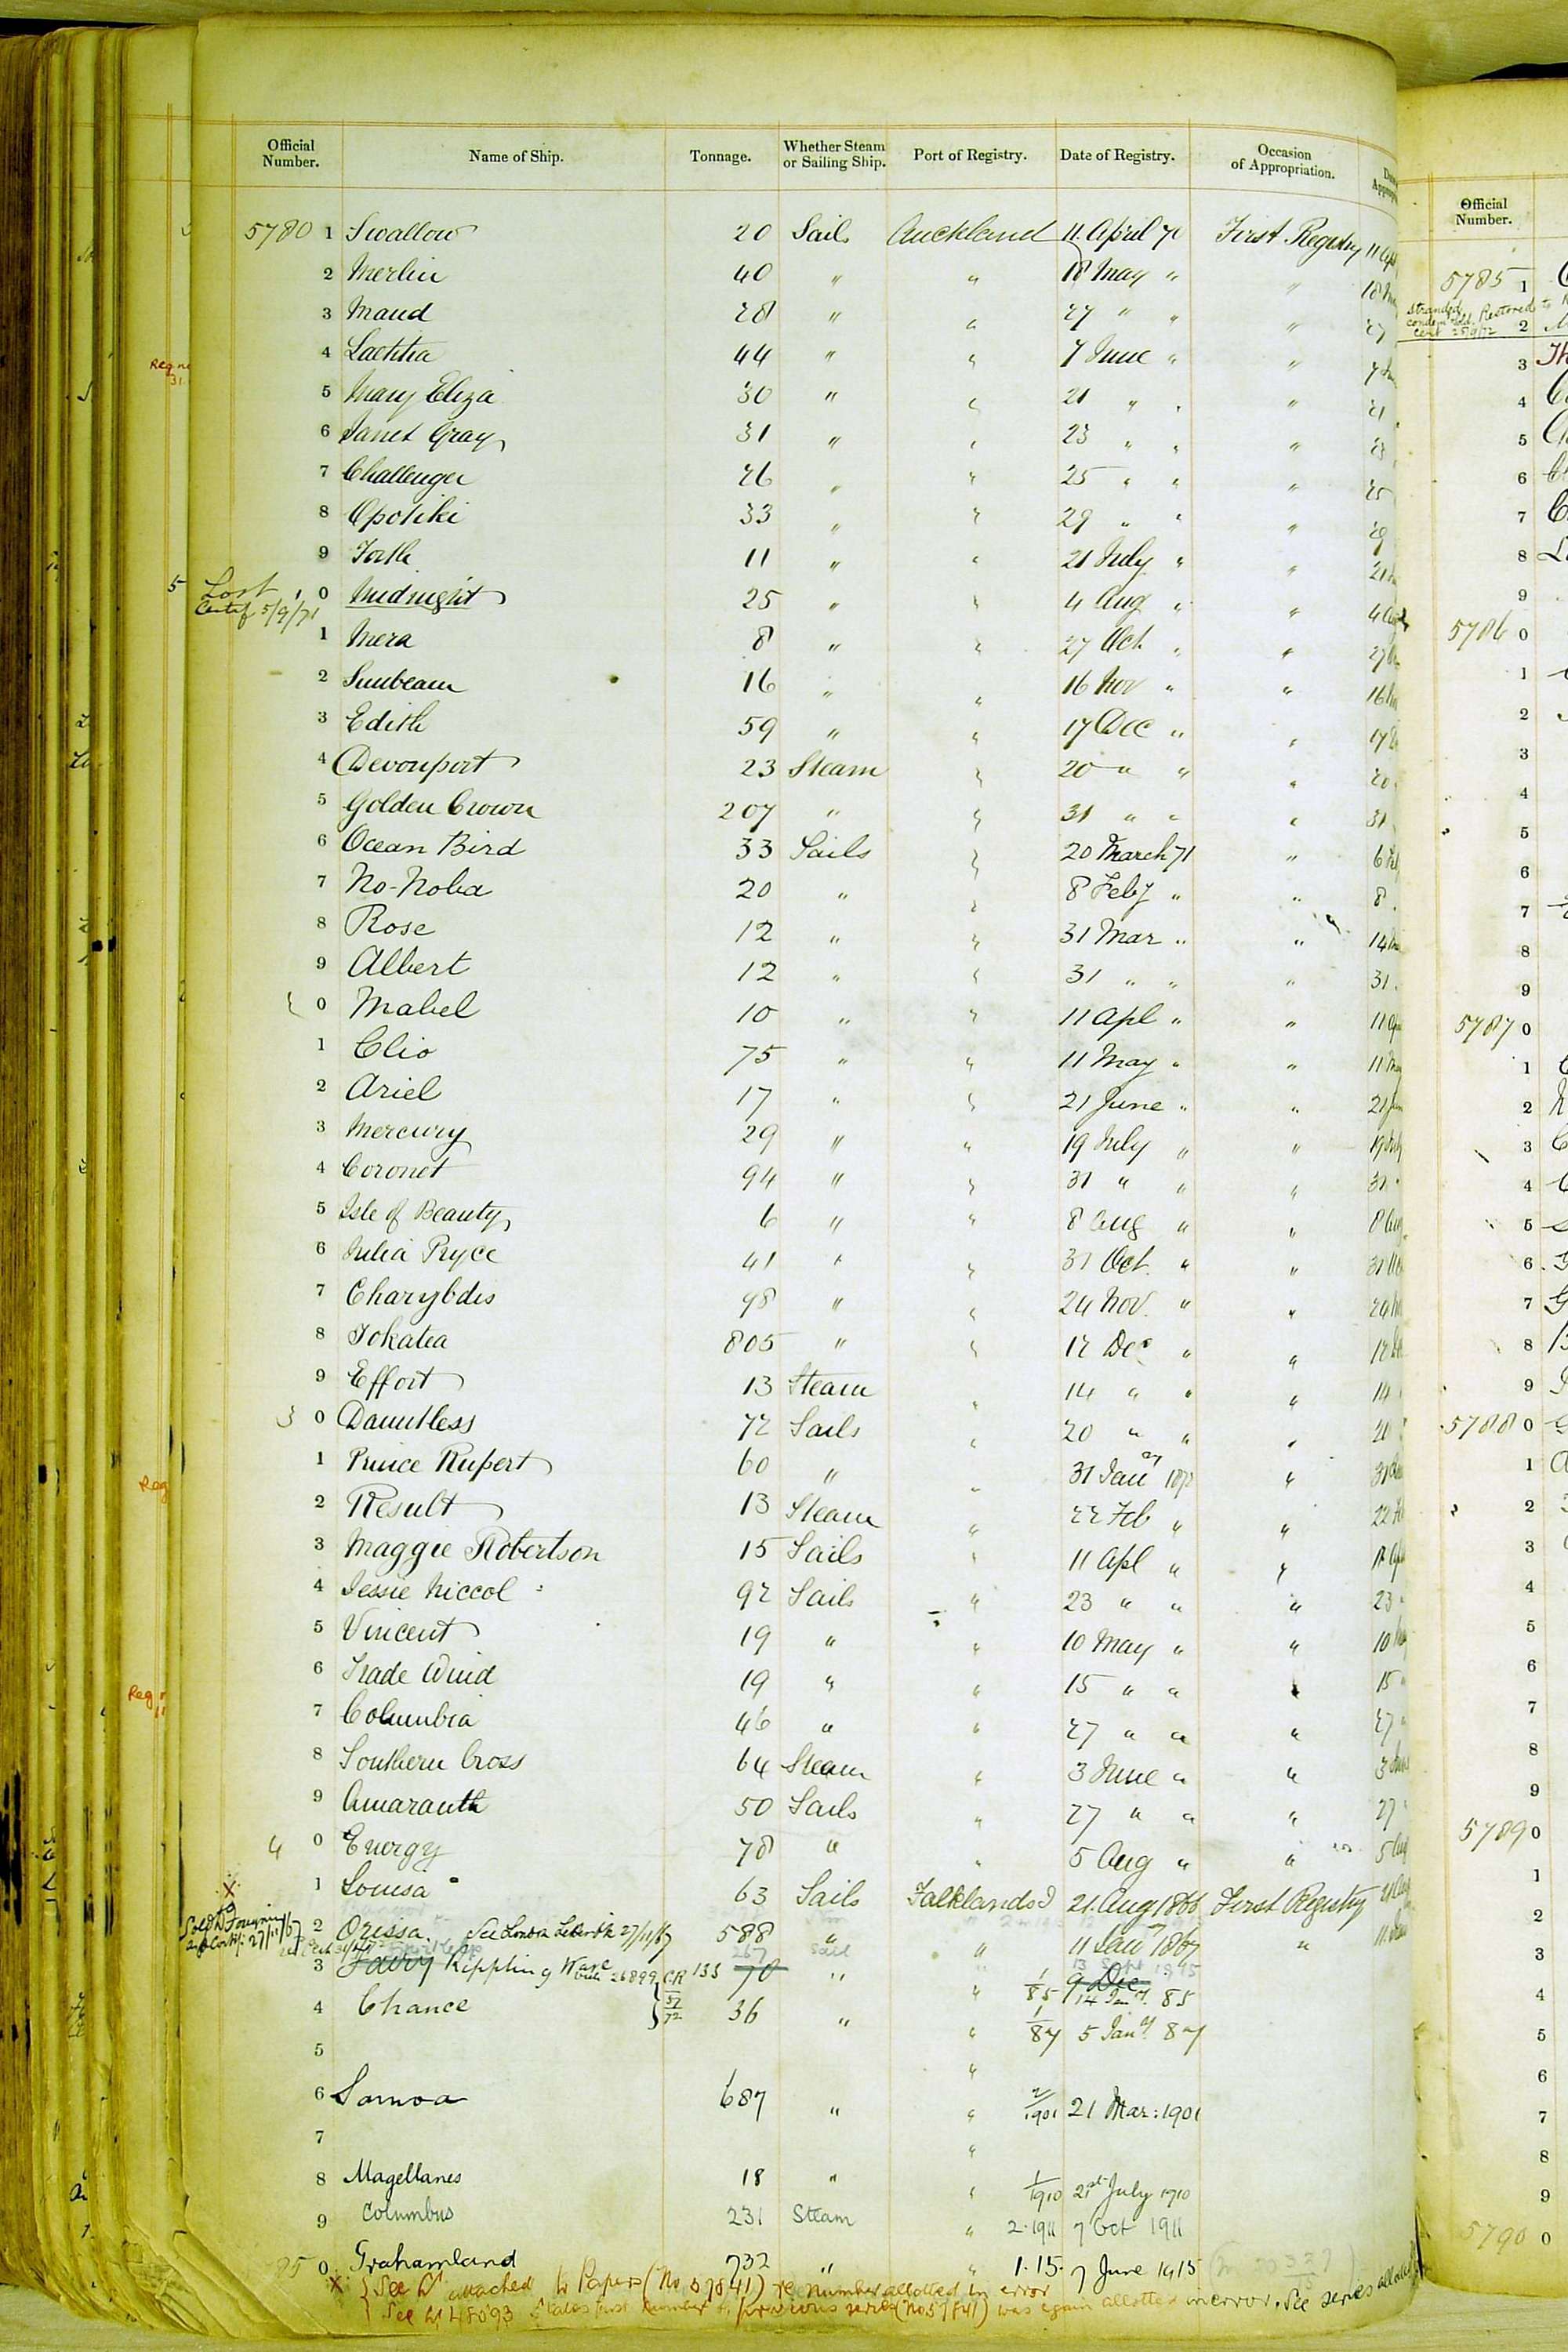 Official Number. Name of Ship. Tonnage. Whether Steam or Sailing Ship. Port of Registry. Date of Registry. Occasion of Appropriation.
5780 1 Swallow 20 Sails Auckland 11 April 71 First Registry 11 Ap
2 Merlin 40 " " 18 May " " 18 M
3 Maud 28 " " 27 " " " 27
4 Laetitia 44 " " 7 June " " 7
5 Mary Eliza 30 " " 21 " " " 21
6 Janet Gray 31 " " 23 " " " 23
7 Challenger 26 " " 25 " " " 25
8 Opotiki 33 " " 29 " " " 29
9 Forth 11 " " 21 July " " 21
5 Lost Certif 5/9/71 0 Midnight 25 " " 4 Aug " " 4 Aug
1 Mera 8 " " 27 Oct " " 27
2 Sunbeam 16 " " 16 Nov " " 16
3 Edith 59 " " 17 Dec " " 17
4 Devonport 23 Steam " 20 " " " 20
5 Golden Crown 207 " " 31 " " " 31
6 Ocean Bird 33 Sails " 20 March 71 " 6
7 No-Noba 20 " " 8 Feby " " 8
8 Rose 12 " " 31 Mar " " 14
9 Albert 12 " " 31 " " " 31
0 Mabel 10 " " 11 Apl " " 11
1 Clio 75 " " 11 May " " 11
2 Ariel 17 " " 21 June " " 21
3 Mercury 29 " " 19 July " " 19
4 Coronet 94 " " 31 " " " 31
5 Isle of Beauty 6 " " 8 Aug " " 8
6 Julia Pryce 41 " " 31 Oct. " " 31
7 Charybdis 98 " " 24 Nov. " "
8 Tokatea 805 " " 12 Dec " " 12
9 Effort 13 Steam " 14 " " " 14
3 0 Dauntless 72 Sails " 20 " " "
1 Prince Rupert 60 " " 31 Jany 187 " 31
2 Result 13 Steam " 22 Feb " " 22
3 Maggie Robertson 15 Sails " 11 Apl " "
4 Jessie Niccol 92 Sails " 23 " " " 23
5 Vincent 19 " " 10 May " " 10
6 Trade Wind 19 " " 15 " " " 15
7 Columbia 46 " " 27 " " " 27
8 Southern Cross 64 Steam " 3 June " " 3
9 Amaranth 50 Sails " 27 " " " 27
4 0 Energy 78 " " 5 Aug " " 5
x 1 Louisa 63 Sails Falklands 21 Aug 1866 First Registry
Sold to Foreigners 27/11/67
2 Orissa. See London 27/11/67 588 " " 11 Jany 1867 "
3 Fairy Rippling Wave 26899 CR 133 70 " " 1/85 9 Dec 14 Jany. 85
4 Chance 36 " " 1/87 5 Jany. 87
5 "
6 Samoa 687 " " 2/1901 21 Mar: 1901
7 "
8 Magellanes 18 " " 1/1910 21st July 1910
9 Columbus 231 Steam " 2.1911 7 Oct 1911
0 Grahamland 732 " " 1.15. 7 June 1915
x See attached to Papers (No 57841) re number allotted in error
See 48093 States first number of previous series (No 57841) was again allotted in error. See series
Official Number.
5785 1
Stranded Restored to
2
3
4
5
6
7
8
9
5786 0
1
2
3
4
5
6
7
8
9
5787 0
1
2
3
4
5
6
7
8
9
5788 0
1
2
3
4
5
6
7
8
9
5789 0
1
2
3
4
5
6
7
8
9
5790 0